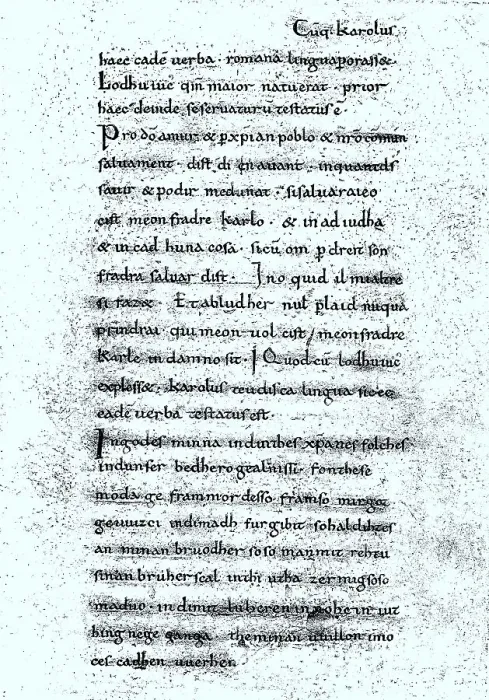 Cūq; karolus
haec eadē uerba · romana lingua perorasset
Lodhuuic qm̄ maior natu erat · prior
haec deinde se seruaturū testatus ē
Pro dō amur & p xp̄ian poblo & nr̄o cōmun
saluament · dist di en auant · in quant dſ
sauir & podir me dunat · si saluarai eo
cist meon fradre karlo · & in ad iudha
& in cad huna cosa · sicū om p dreit son
fradra saluar dist · Ino quid il mi altre
si faz& · Et ab ludher nul plaid nūquā
prindrai qui meon uol cist / meon fradre
Karle in damno sit · Quod cū lodhuuic
expless& · karolus teudisca lingua sic ec
eadē uerba testatus est ·
In godes minna ind inthes xp̄anes folches
ind unser bedhero gealtnissi · fon these
moda ge frammordesso · fram so mir got
geuuizci indi madh furgibit so hald ih tes
an minan bruodher soso man mit rehtu
sinan bruher scal inthi utha zer mig soso
maduo · indi mit luheren in nohein iut
hing nege ganga · the minan uuillon imo
ces cadhen uuerhen ·